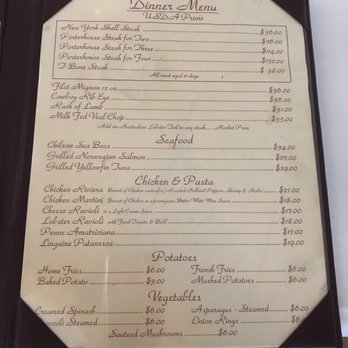 Dinner Menu
USDA Prime
New York Shell Steak $36.00
Porterhouse Steak for Two $76.00
Porterhouse Steak for Three $114.00
Porterhouse Steak for Four $152.00
T-Bone Steak $38.00
All meat aged 21 days
Filet Mignon 12 oz $36.00
Cowboy Rib Eye $36.00
Rack of Lamb $31.00
Milk Fed Veal Chop $33.00
Add an Australian Lobster Tail to any steak Market Price
Seafood
Chilean Sea Bass $34.00
Grilled Norwegian Salmon $27.00
Grilled Yellowfin Tuna $29.00
Chicken & Pasta
Chicken Riviera Breast of Chicken Roasted Peppers, Shrimp & $21.00
Chicken Martini Breast of Chicken in a parmigiano Butter White Wine Sauce $18.00
Cheese Ravioli in a Light Cream Sauce $17.00
Lobster Ravioli with Fresh Tomato & Basil $18.00
Penne Amatriciana $17.00
Linguine Putanesca $19.00
Potatoes
Home Fries $6.00 French Fries $6.00
Baked Potato $3.00 Mashed Potatoes $6.00
Vegetables
Creamed Spinach $6.00 Asparagus - Steamed $6.00
Broccoli Steamed $6.00 Onion Rings $6.00
Sauteed Mushrooms $6.00